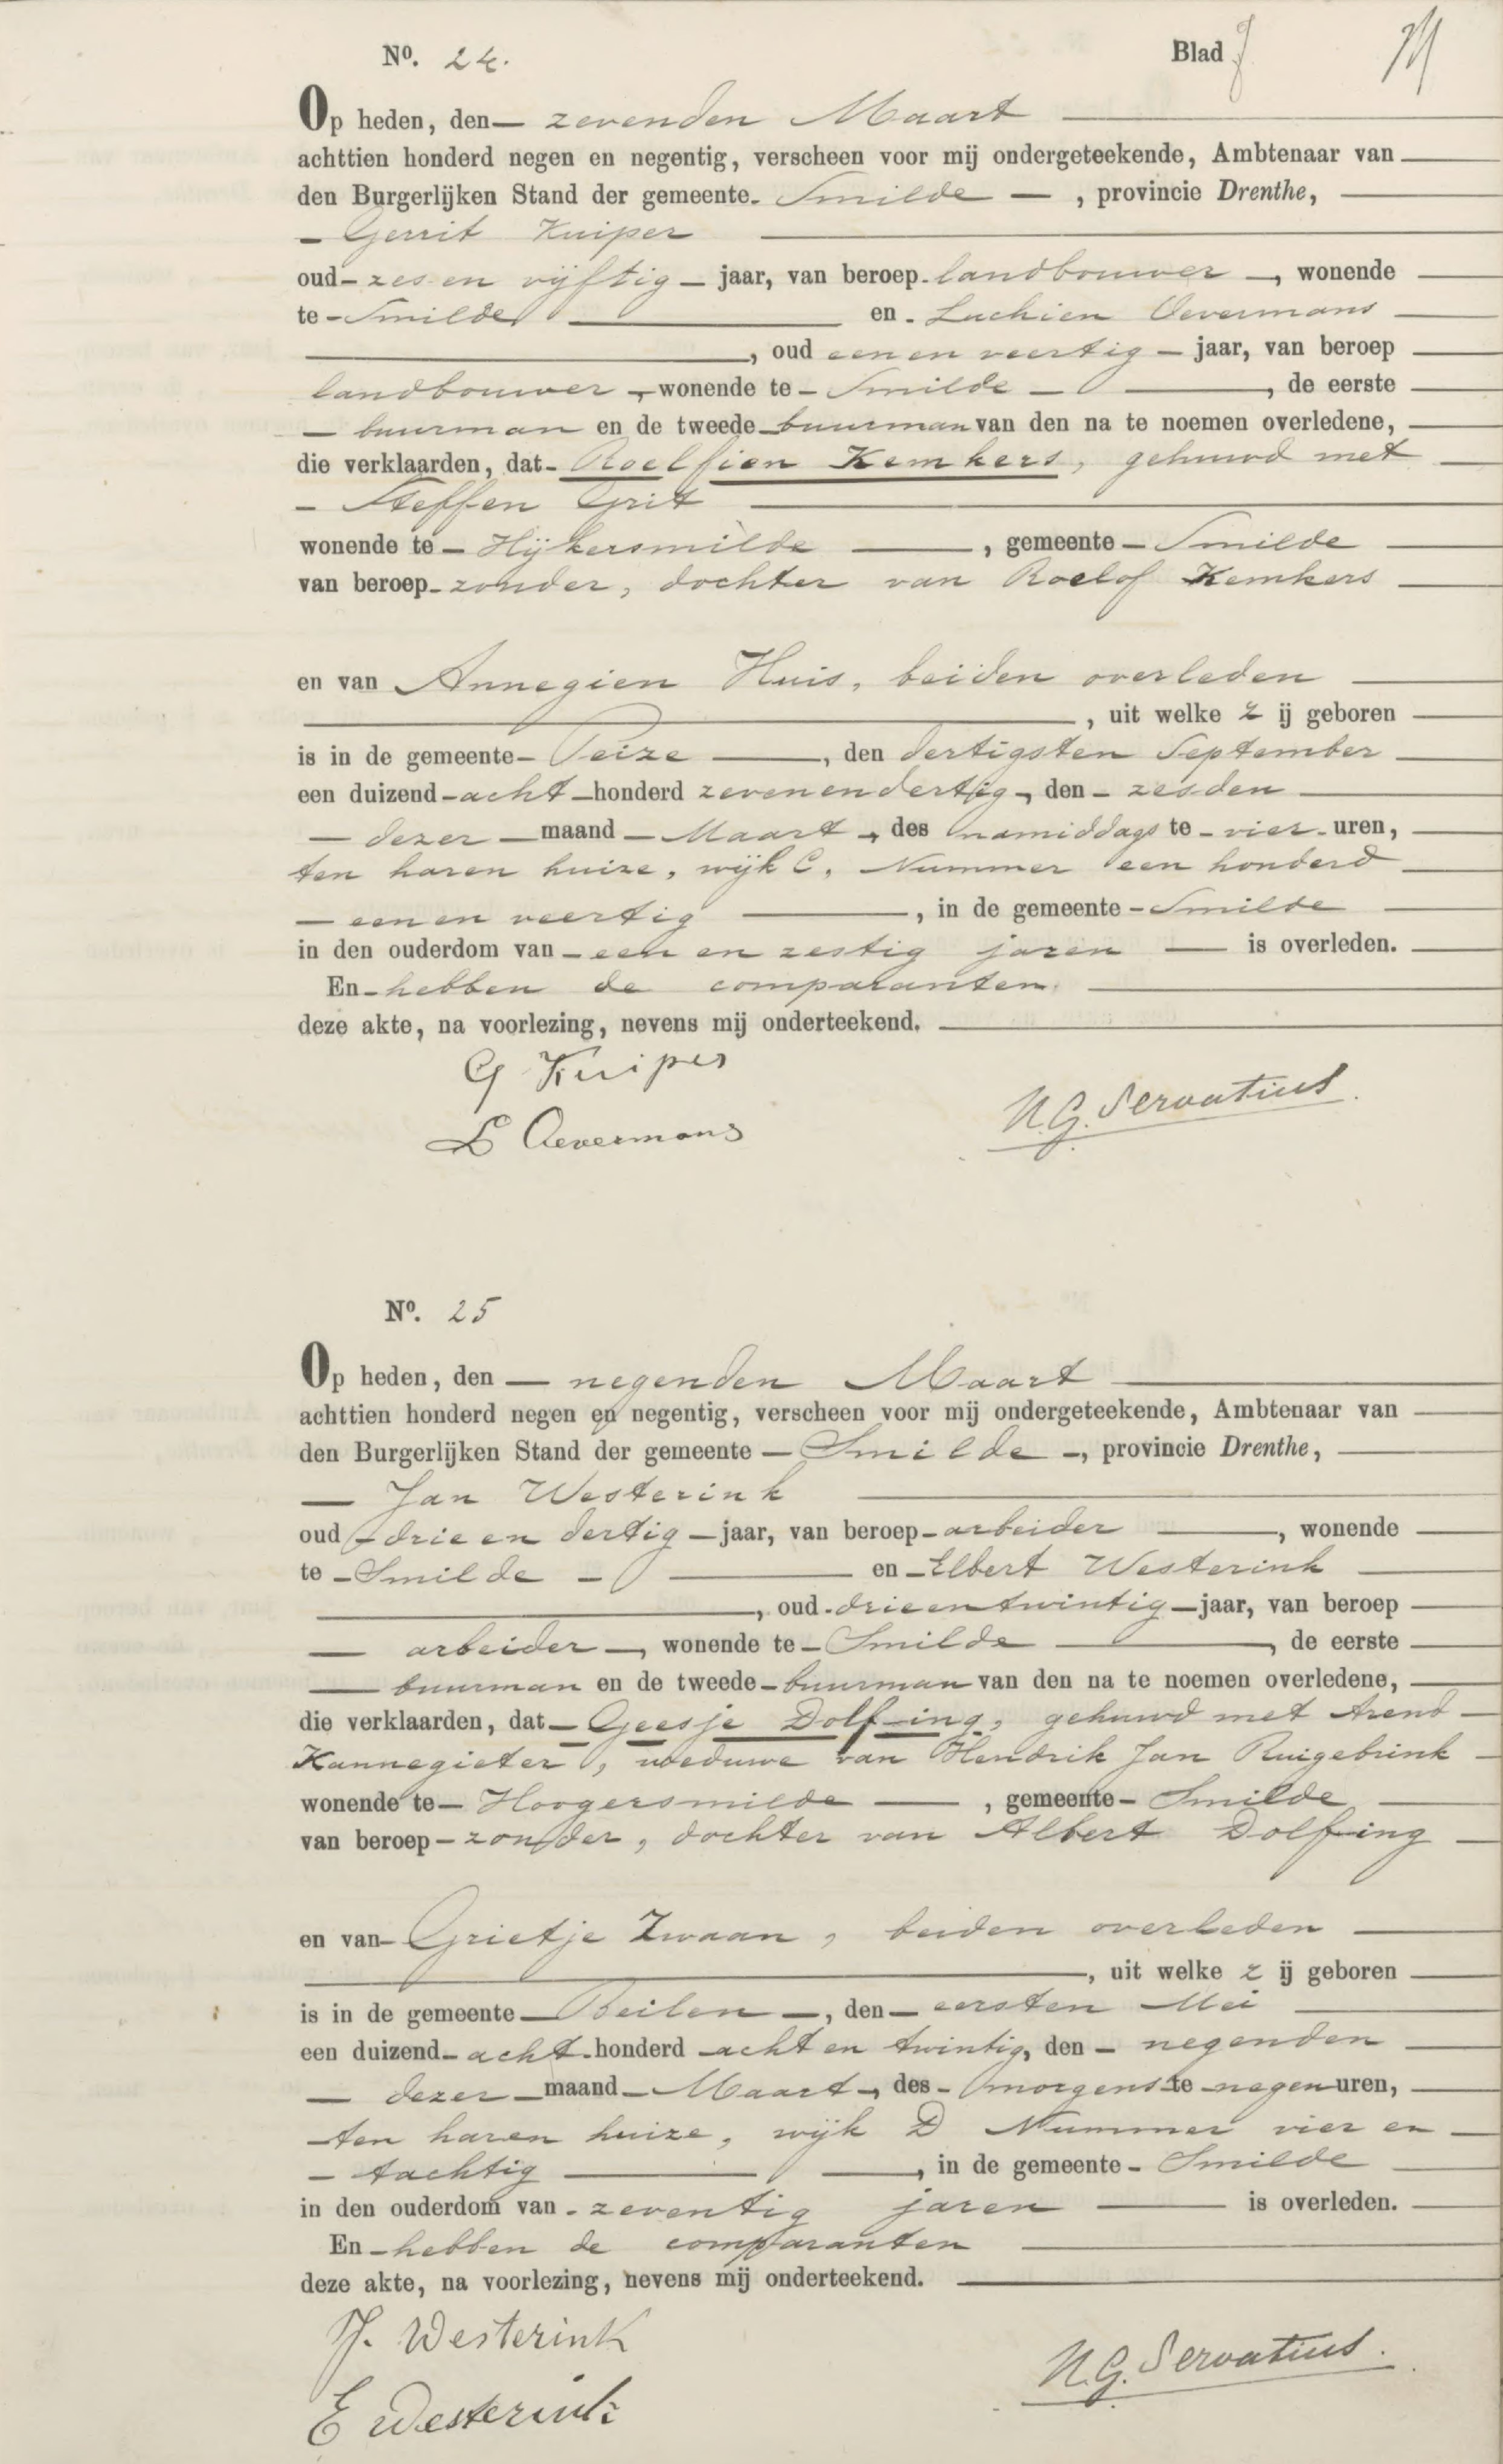 Nº. 24. Blad 7
Op heden, den zevenden Maart
achttien honderd negen en negentig, verscheen voor mij ondergeteekende, Ambtenaar van
den Burgerlijken Stand der gemeente Smilde, provincie Drenthe,
Gerrit Kuiper
oud zes en vijftig jaar, van beroep landbouwer, wonende
te Smilde en Luchien Oevermans
, oud een en veertig jaar, van beroep
landbouwer, wonende te Smilde, de eerste
buurman en de tweede buurman van den na te noemen overledene,
die verklaarden, dat Roelfien Kemkers, gehuwd met
Steffen Grit
wonende te Hijkersmilde, gemeente Smilde
van beroep zonder, dochter van Roelof Kemkers
en van Annegien Huis, beiden overleden
, uit welke zij geboren
is in de gemeente Peize, den dertigsten September
een duizend acht honderd zevenendertig, den zesden
dezer maand Maart, des namiddags te vier uren,
ten haren huize, wijk C, Nummer een honderd
een en veertig, in de gemeente Smilde
in den ouderdom van een en zestig jaren is overleden.
En hebben de comparanten
deze akte, na voorlezing, nevens mij onderteekend.
G Kuiper
N.G. Servatius
L Oevermans
Nº. 25
Op heden, den negenden Maart
achttien honderd negen en negentig, verscheen voor mij ondergeteekende, Ambtenaar van
den Burgerlijken Stand der gemeente Smilde, provincie Drenthe,
Jan Westerink
oud drie en dertig jaar, van beroep arbeider, wonende
te Smilde en Elbert Westerink
, oud drie en twintig jaar, van beroep
arbeider, wonende te Smilde, de eerste
buurman en de tweede buurman van den na te noemen overledene,
die verklaarden, dat Geesje Dolfing, gehuwd met Arend
Kannegieter, weduwe van Hendrik Jan Ruigebrink
wonende te Hoogersmilde, gemeente Smilde
van beroep zonder, dochter van Albert Dolfing
en van Grietje Zwaan, beiden overleden
, uit welke zij geboren
is in de gemeente Beilen, den eersten Mei
een duizend acht honderd acht en twintig, den negenden
dezer maand Maart, des morgens te negen uren,
ten haren huize, wijk D Nummer vier en
tachtig, in de gemeente Smilde
in den ouderdom van zeventig jaren is overleden.
En hebben de comparanten
deze akte, na voorlezing, nevens mij onderteekend.
J. Westerink
N.G. Servatius.
E Westerink